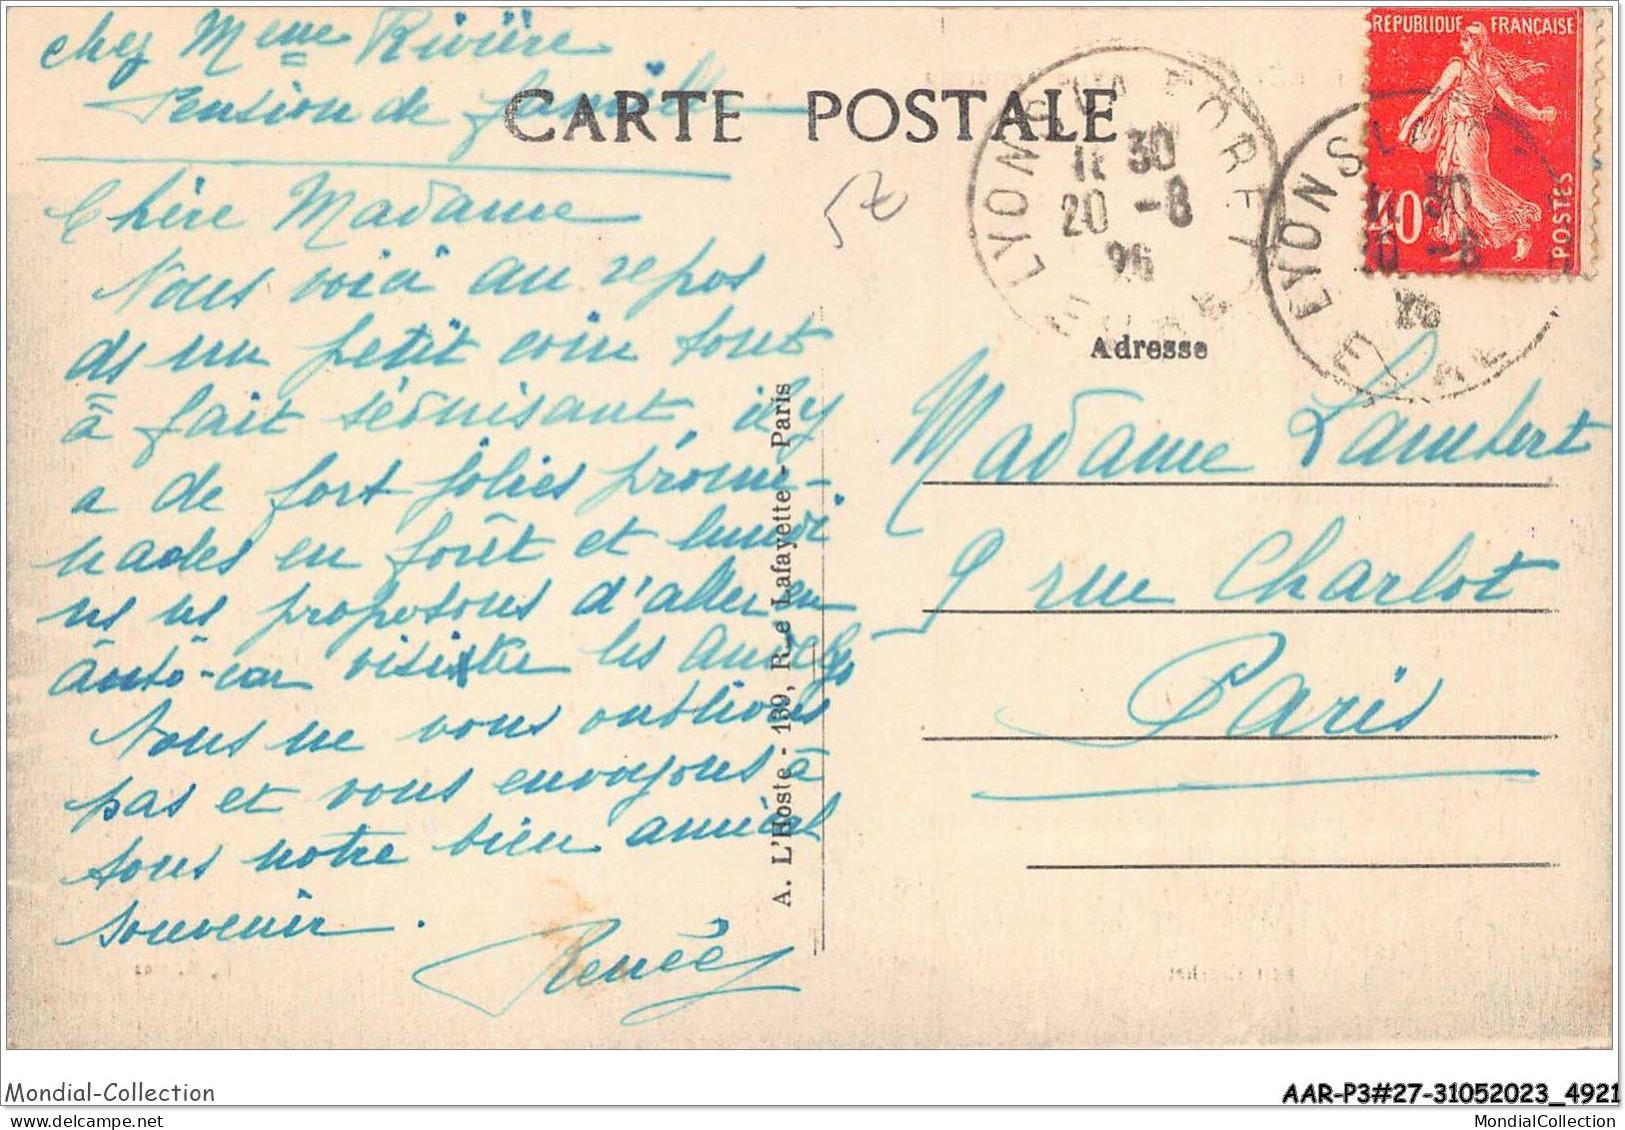 chez Mme Rivière
Pension de famille
CARTE POSTALE
Chère Madame
Nous voici au repos
ds un petit coin tout
à fait séduisant, il y
a de fort jolies prome-
nades en forêt et lundi
ns ns proposons d'aller en
auto-car visiter les Andelys
Nous ne vous oublions
pas et vous envoyons à
tous notre bien amical
souvenir.
Renée
A. L'Hoste - 139, R. e Lafayette - Paris
LYONS LA FORET
11 30
20 -8
26
EURE
REPUBLIQUE FRANÇAISE
40c
POSTES
LYONS LA
11 30
20 -8
26
EURE
Adresse
Madame Lambert
9 rue Charlot
Paris
Mondial-Collection
AAR-P3#27-31052023_4921
www.delcampe.net
MondialCollection